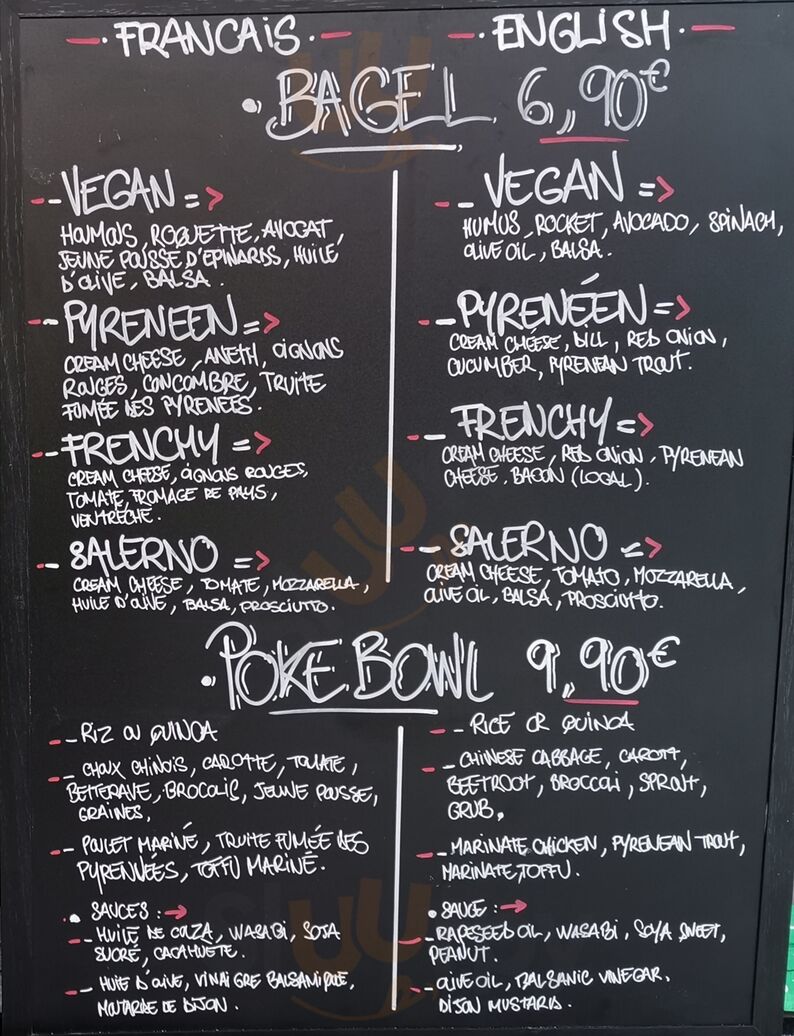 FRANCAIS
ENGLISH
BAGEL 6,90€
VEGAN =>
HOUMOUS, ROQUETTE, AVOCAT,
JEUNE POUSSE D'EPINARDS, HUILE
D'OLIVE, BALSA.
PYRENEEN =>
CREAM CHEESE, ANETH, OIGNONS
ROUGES, CONCOMBRE, TRUITE
FUMÉE DES PYRENEES.
FRENCHY =>
CREAM CHEESE, OIGNONS ROUGES,
TOMATE, FROMAGE DE PAYS,
VENTRÈCHE.
SALERNO =>
CREAM CHEESE, TOMATE, MOZZARELLA,
HUILE D'OLIVE, BALSA, PROSCIUTTO.
VEGAN =>
HUMUS, ROCKET, AVOCADO, SPINACH,
OLIVE OIL, BALSA.
PYRENÉEN =>
CREAM CHEESE, DILL, RED ONION,
CUCUMBER, PYRENEAN TROUT.
FRENCHY =>
CREAM CHEESE, RED ONION, PYRENEAN
CHEESE, BACON (LOCAL).
SALERNO =>
CREAM CHEESE, TOMATO, MOZZARELLA,
OLIVE OIL, BALSA, PROSCIUTTO.
POKE BOWL 9,90€
RIZ OU QUINOA
CHOUX CHINOIS, CAROTTE, TOMATE,
BETTERAVE, BROCOLIS, JEUNE POUSSE,
GRAINES,
POULET MARINÉ, TRUITE FUMÉE DES
PYRENNÉES, TOFFU MARINÉ.
SAUCES : →
HUILE DE COLZA, WASABI, SOJA
SUCRÉ, CACAHUETE.
HUILE D'OLIVE, VINAIGRE BALSAMIQUE,
MOUTARDE DE DIJON.
RICE OR QUINOA
CHINESE CABBAGE, CAROTT,
BEETROOT, BROCCOLI, SPROUT,
GRUB,
MARINATE CHICKEN, PYRENEAN TROUT,
MARINATE TOFFU.
SAUCE : →
RAPESEED OIL, WASABI, SOYA SWEET,
PEANUT.
OLIVE OIL, BALSANIC VINEGAR,
DIJON MUSTARD.